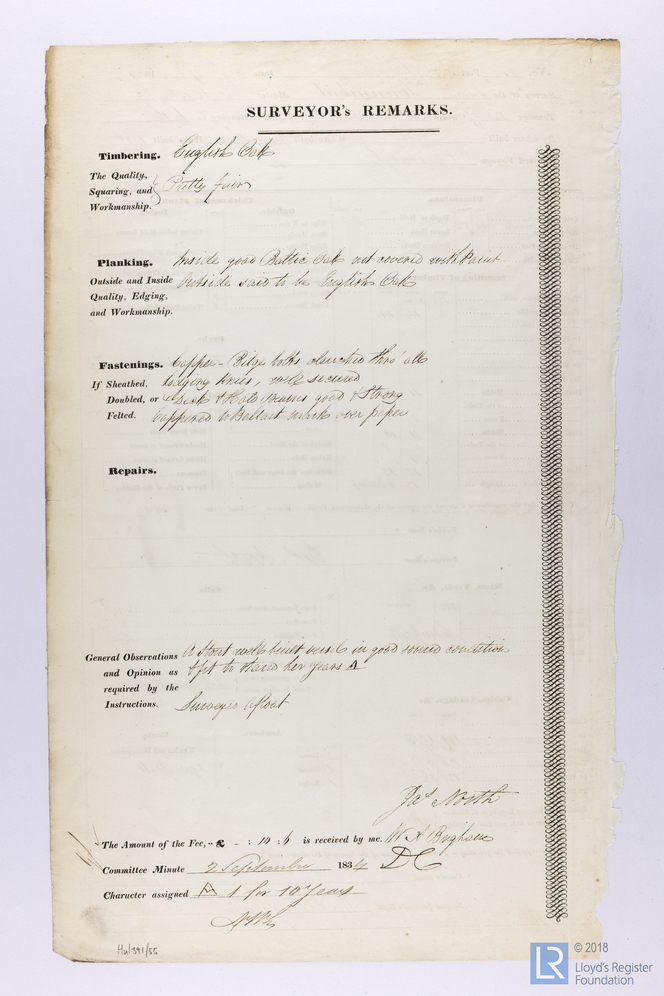 SURVEYOR's REMARKS.
Timbering. English Oak
The Quality, Squaring, and Workmanship. Pretty fair
Planking. Inside good Baltic Oak not covered with Paint
Outside and Inside Quality, Edging, and Workmanship. Outside said to be English Oak
Fastenings. Copper - Bilge bolts clenched thro' all
If Sheathed, lodging knees, well secured
Doubled, or Deck & Hold Beams good & Strong
Felted. Coppered to Ballast mark over paper
Repairs.
General Observations and Opinion as required by the Instructions.
A Stout well built vessel in good sound condition
& fit to stand her years A
Surveyed afloat
Jas North
The Amount of the Fee, £ - : 10 : 6 is received by me. W A Brigham
Committee Minute 2 September 1834 DC
Character assigned A 1 for 10 Years
Hul391/55
LR
© 2018
Lloyd's Register
Foundation